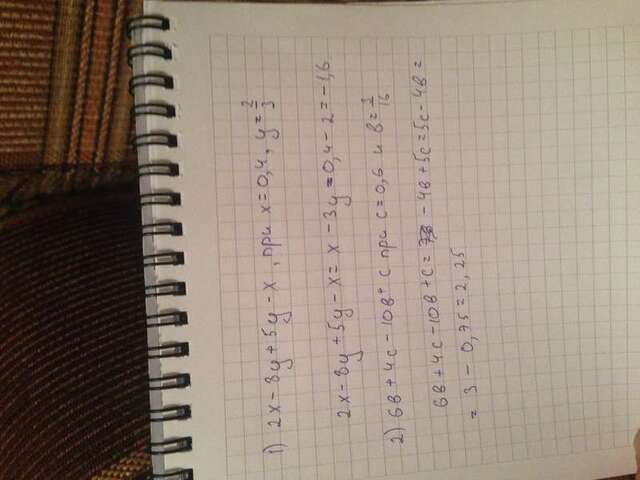 1) 2x - 8y + 5y - x , при x = 0,4, y = 2/3
2x - 8y + 5y - x = x - 3y = 0,4 - 2 = -1,6
2) 6в + 4с - 10в + с при с = 0,6 и в = 3/16
6в + 4с - 10в + с = - 4в + 5с = 5с - 4в =
= 3 - 0,75 = 2,25